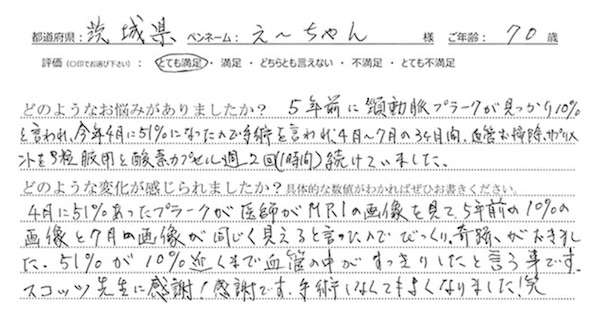 都道府県: 茨城県 ペンネーム: え〜ちゃん 様 ご年齢: 70 歳
評価(〇印でお選び下さい): とても満足 ・ 満足 ・ どちらとも言えない ・ 不満足 ・ とても不満足
どのようなお悩みがありましたか? 5年前に頸動脈プラークが見つかり10%
と言われ、今年4月に51%になったので手術を言われ、4月〜7月の3ヶ月間、血管お掃除サプリメ
ントを8粒服用と酸素カプセル週2回(1時間)続けていました。
どのような変化が感じられましたか?具体的な数値がわかればぜひお書きください。
4月に51%あったプラークが医師がMRIの画像を見て、5年前の10%の
画像と7月の画像が同じく見えると言ったのでびっくり、奇跡、がおきまし
た。51%が10%近くまで血管の中がすっきりしたと言う事です。
スコッツ先生に感謝!感謝です。手術しなくてもよくなりました!笑